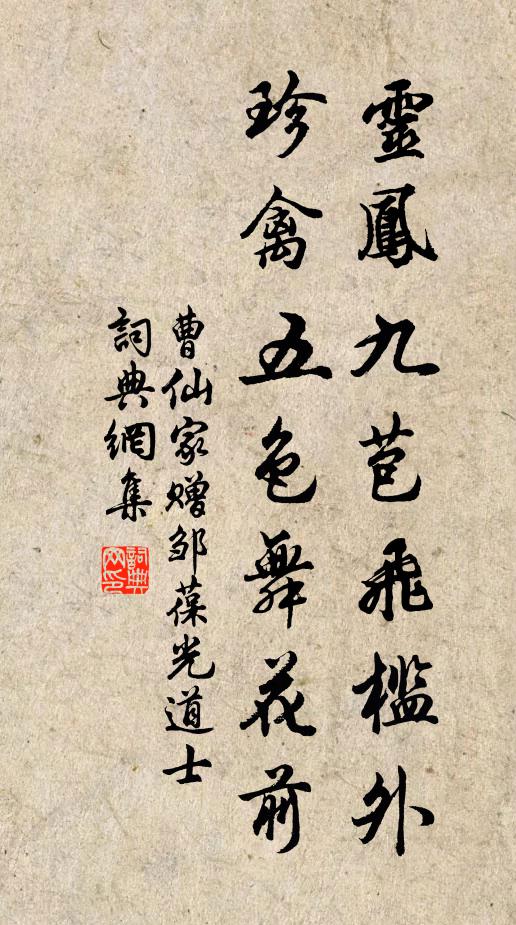 靈鳳九苞飛檻外
珍禽五色舞花前
曹仙家赠邹葆光道士
詞典網集
詞典網印